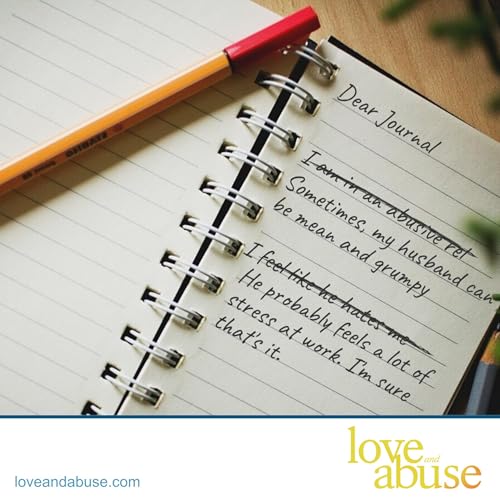 Dear Journal
I am in an abusive rel
Sometimes, my husband can
be mean and grumpy
I feel like he hates me
He probably feels a lot of
stress at work. I'm sure
that's it.
STABILO
loveandabuse.com
love and
abuse